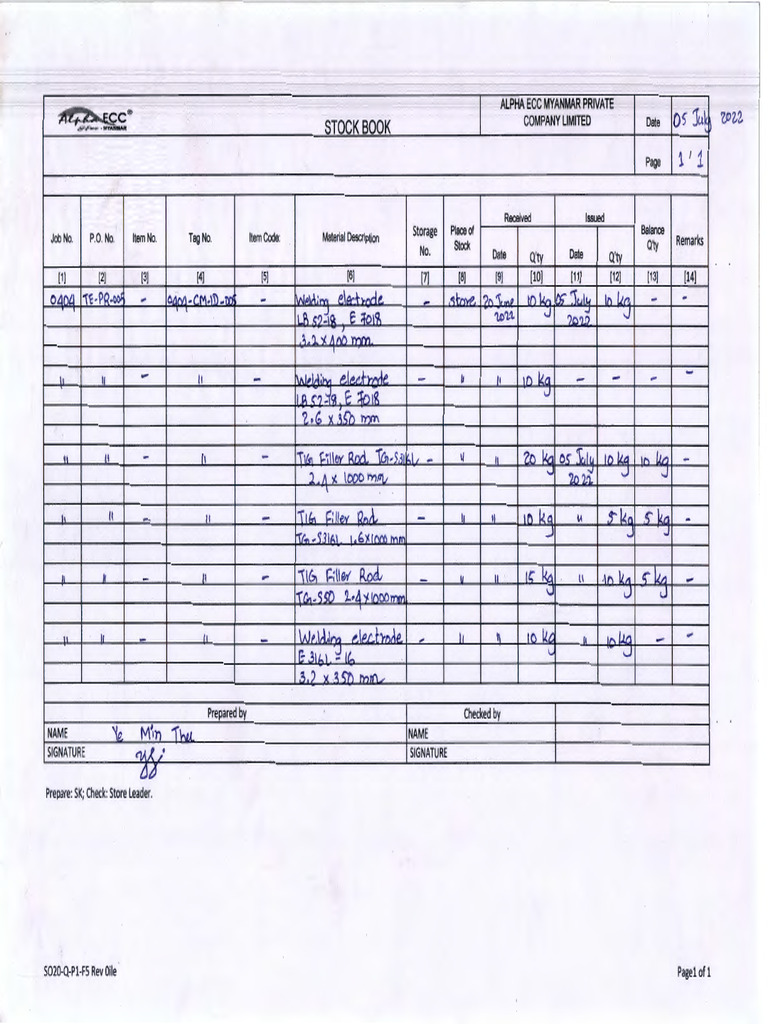 Alpha ECC®
MYANMAR
STOCK BOOK
ALPHA ECC MYANMAR PRIVATE
COMPANY LIMITED
Date 05 July 2022
Page 1 ' 1
Job No. P.O. No. Item No. Tag No. Item Code: Material Description Storage No. Place of Stock Received Issued Balance Q'ty Remarks
Date Q'ty Date Q'ty
[1] [2] [3] [4] [5] [6] [7] [8] [9] [10] [11] [12] [13] [14]
0404 TE-PR-005 - 0404-CM-ID-005 - Welding electrode - store 20 June 10 kg 05 July 10 kg - -
LB 52-18, E 7018 2022 2022
3.2 x 400 mm
" " - " - Welding electrode - " " 10 kg - - - -
LB 52-18, E 7018
2.6 x 350 mm
" " - " - TIG Filler Rod TG-S316L - " " 20 kg 05 July 10 kg 10 kg -
2.4 x 1000 mm 2022
" " - " - TIG Filler Rod - " " 10 kg " 5 kg 5 kg -
TG-S316L 1.6x1000 mm
" " - " - TIG Filler Rod - " " 15 kg " 10 kg 5 kg -
TG-S50 2.4x1000mm
" " - " - Welding electrode - " " 10 kg " 10 kg - -
E 316L-16
3.2 x 350 mm
Prepared by Checked by
NAME Ye Min Thu NAME
SIGNATURE SIGNATURE
Prepare: SK; Check: Store Leader.
SO20-Q-P1-F5 Rev 0ile Page1 of 1